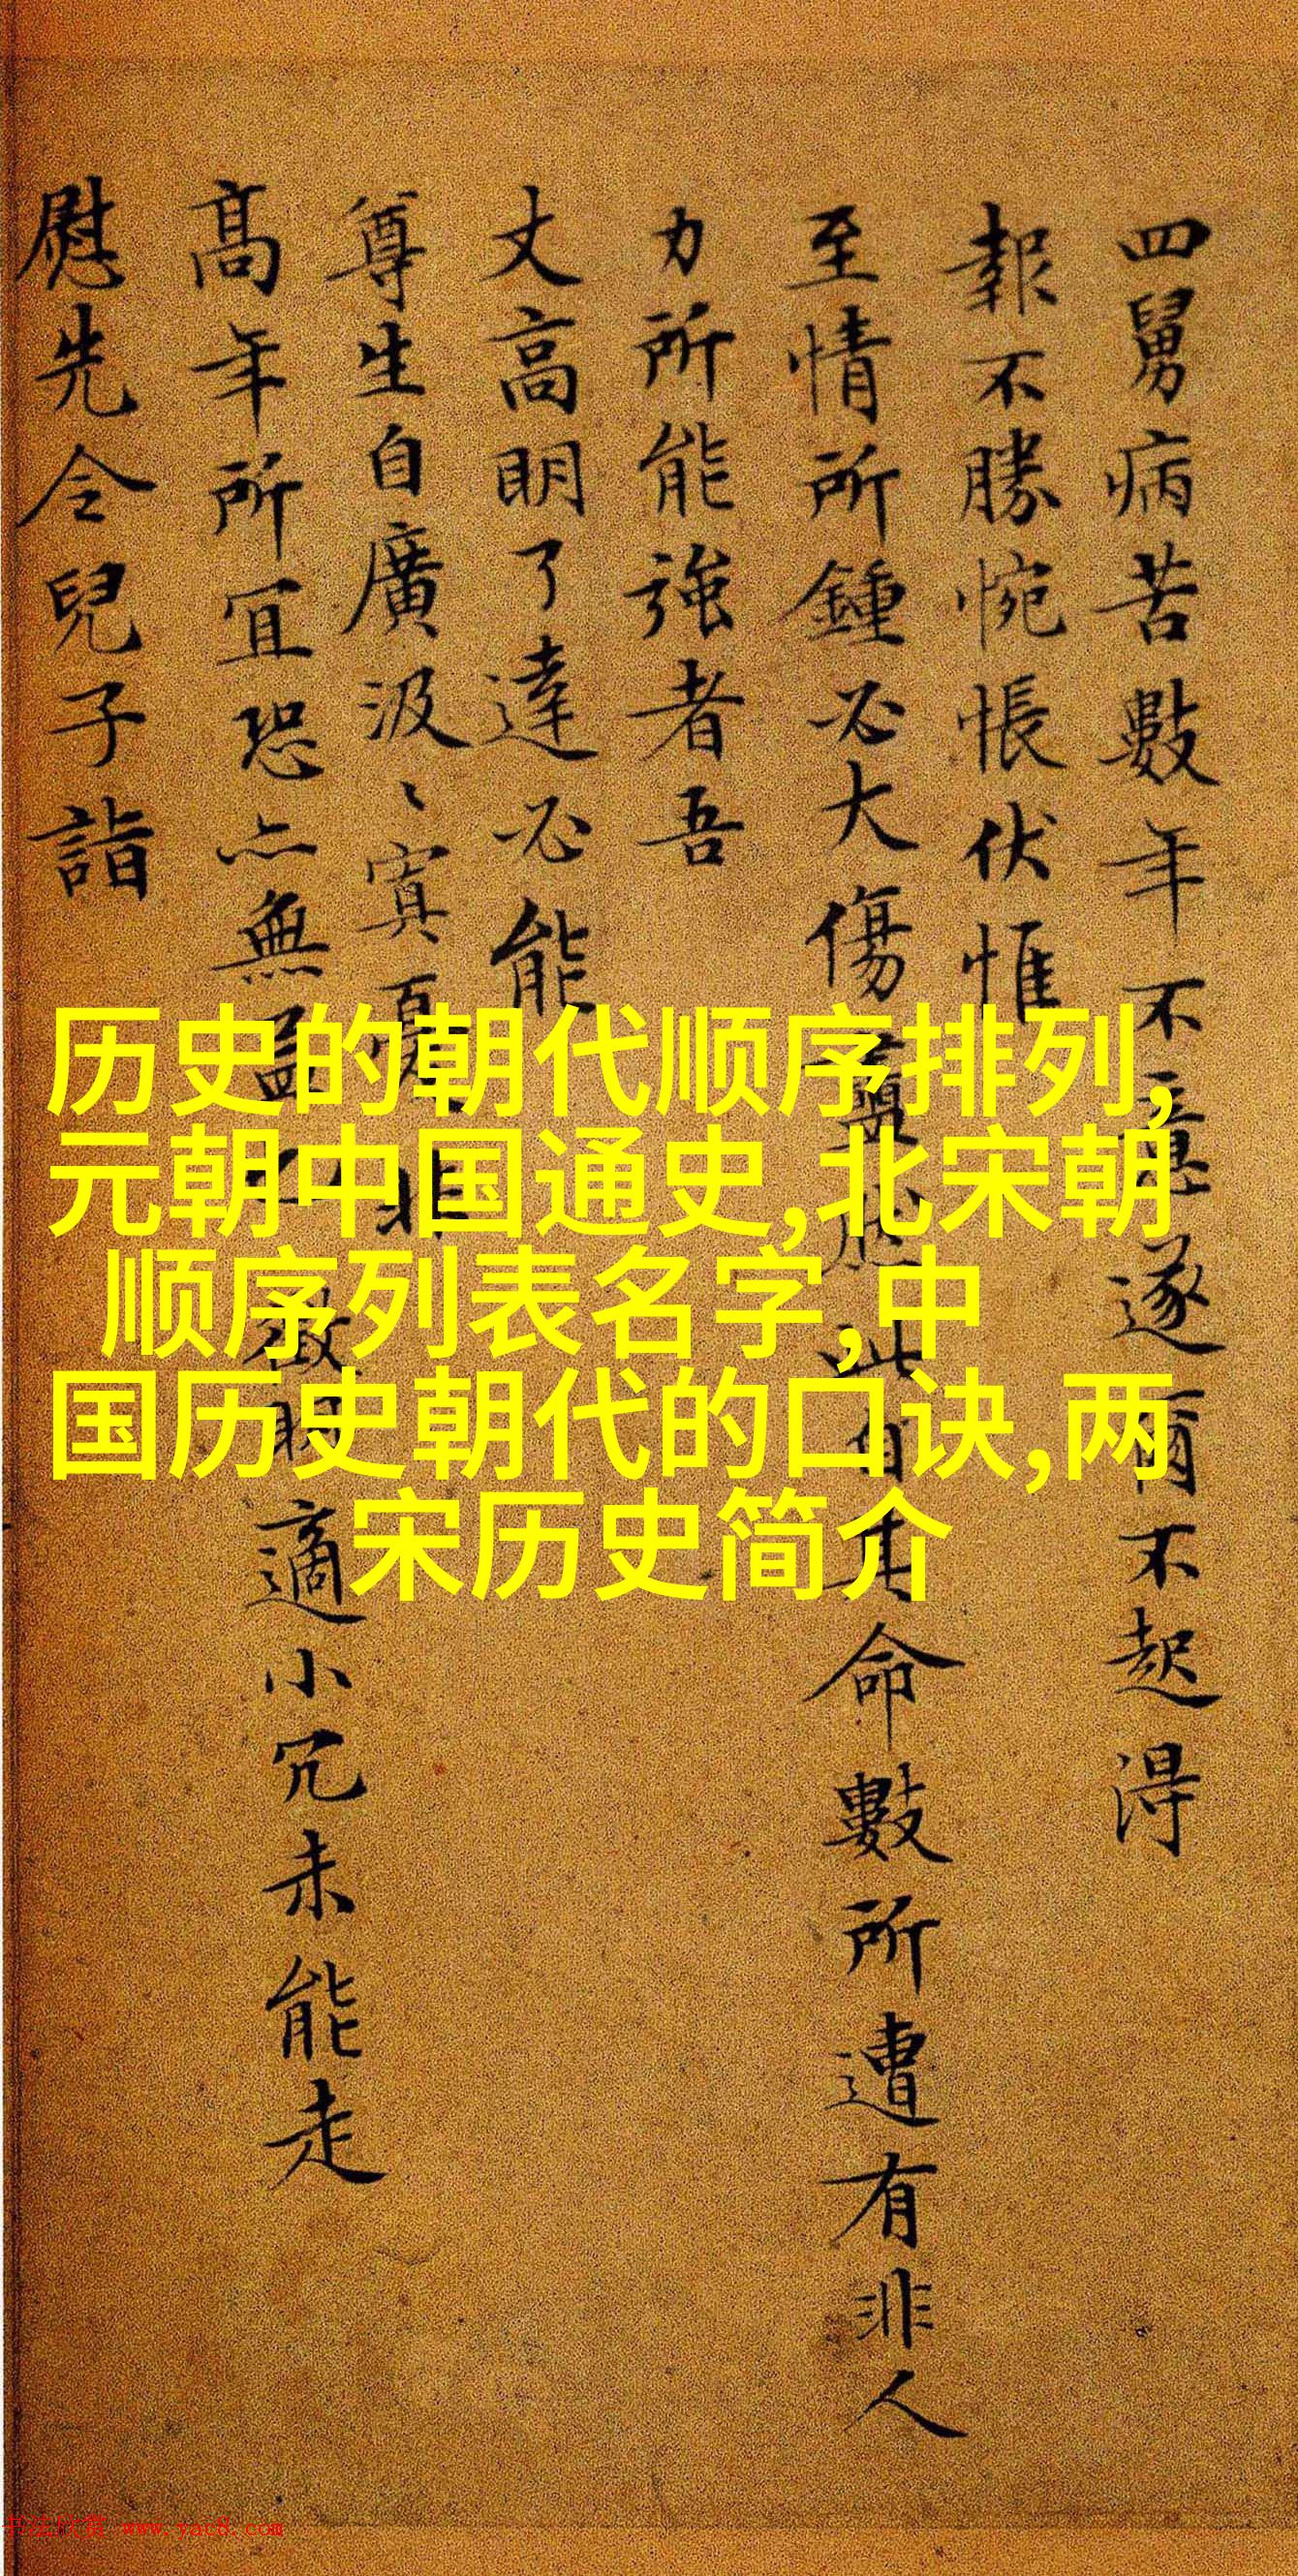 四舅病苦數年不意遂爾不起得
報不勝惋悵伏惟
至情所鍾必大傷此自其命數所遭有非人
力所能強者吾
丈高明了達必能
尊生自廣汲〻寘憂非
髙年所冝恐亦無益故明適小冗未能走
慰先令兒子詣
历史的朝代顺序排列,
元朝中国通史,北宋朝
顺序列表名字,中
国历史朝代的口诀,两
宋历史简介
书法欣赏 www.yac8.com